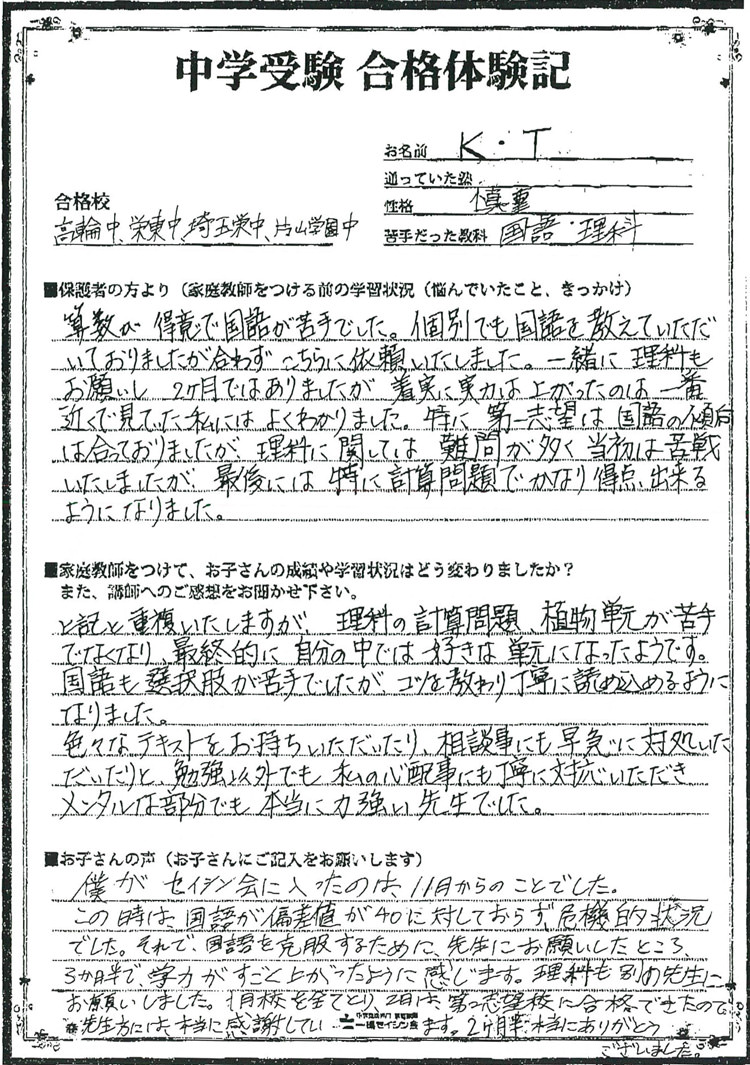 中学受験 合格体験記
お名前 K・T
通っていた塾
性格 慎重
苦手だった教科 国語・理科
合格校
高輪中、栄東中、埼玉栄中、片山学園中
■保護者の方より（家庭教師をつける前の学習状況（悩んでいたこと、きっかけ）
算数が得意で国語が苦手でした。個別でも国語を教えていただ
いておりましたが合わずこちらに依頼いたしました。一緒に理科も
お願いし 2ヶ月ではありましたが 着実に実力は上がったのは一番
近くで見ていた私にはよくわかりました。特に第一志望は国語の傾向
は合っておりましたが 理科に関しては 難問が多く当初は苦戦
いたしましたが、最後には 特に計算問題でかなり得点出来る
ようになりました。
■家庭教師をつけて、お子さんの成績や学習状況はどう変わりましたか？
また、講師へのご感想をお聞かせ下さい。
上記と重複いたしますが、理科の計算問題、植物単元が苦手
でなくなり 最終的に 自分の中では好きな単元になったようです。
国語も選択肢が苦手でしたが コツを教わり丁寧に読め込めるように
なりました。
色々なテキストをお持ちいただいたり、相談事にも早急に対処いた
だいたりと、勉強以外でも 私の心配事にも丁寧に対応いただき
メンタルな部分でも本当に力強い先生でした。
■お子さんの声（お子さんにご記入をお願いします）
僕がセイシン会に入ったのは、11月からのことでした。
この時は、国語が偏差値が40に対しておらず、危機的状況
でした。それで国語を克服するために、先生にお願いしたところ、
3か月半で、学力がすごと上がったように感じます。理科も別の先生に
お願いしました。1月校を全てとり、2月は、第二志望校に合格できたので、
先生方には、本当に感謝してい ます。2ヶ月半、本当にありがとう
ございました。
一橋セイシン会